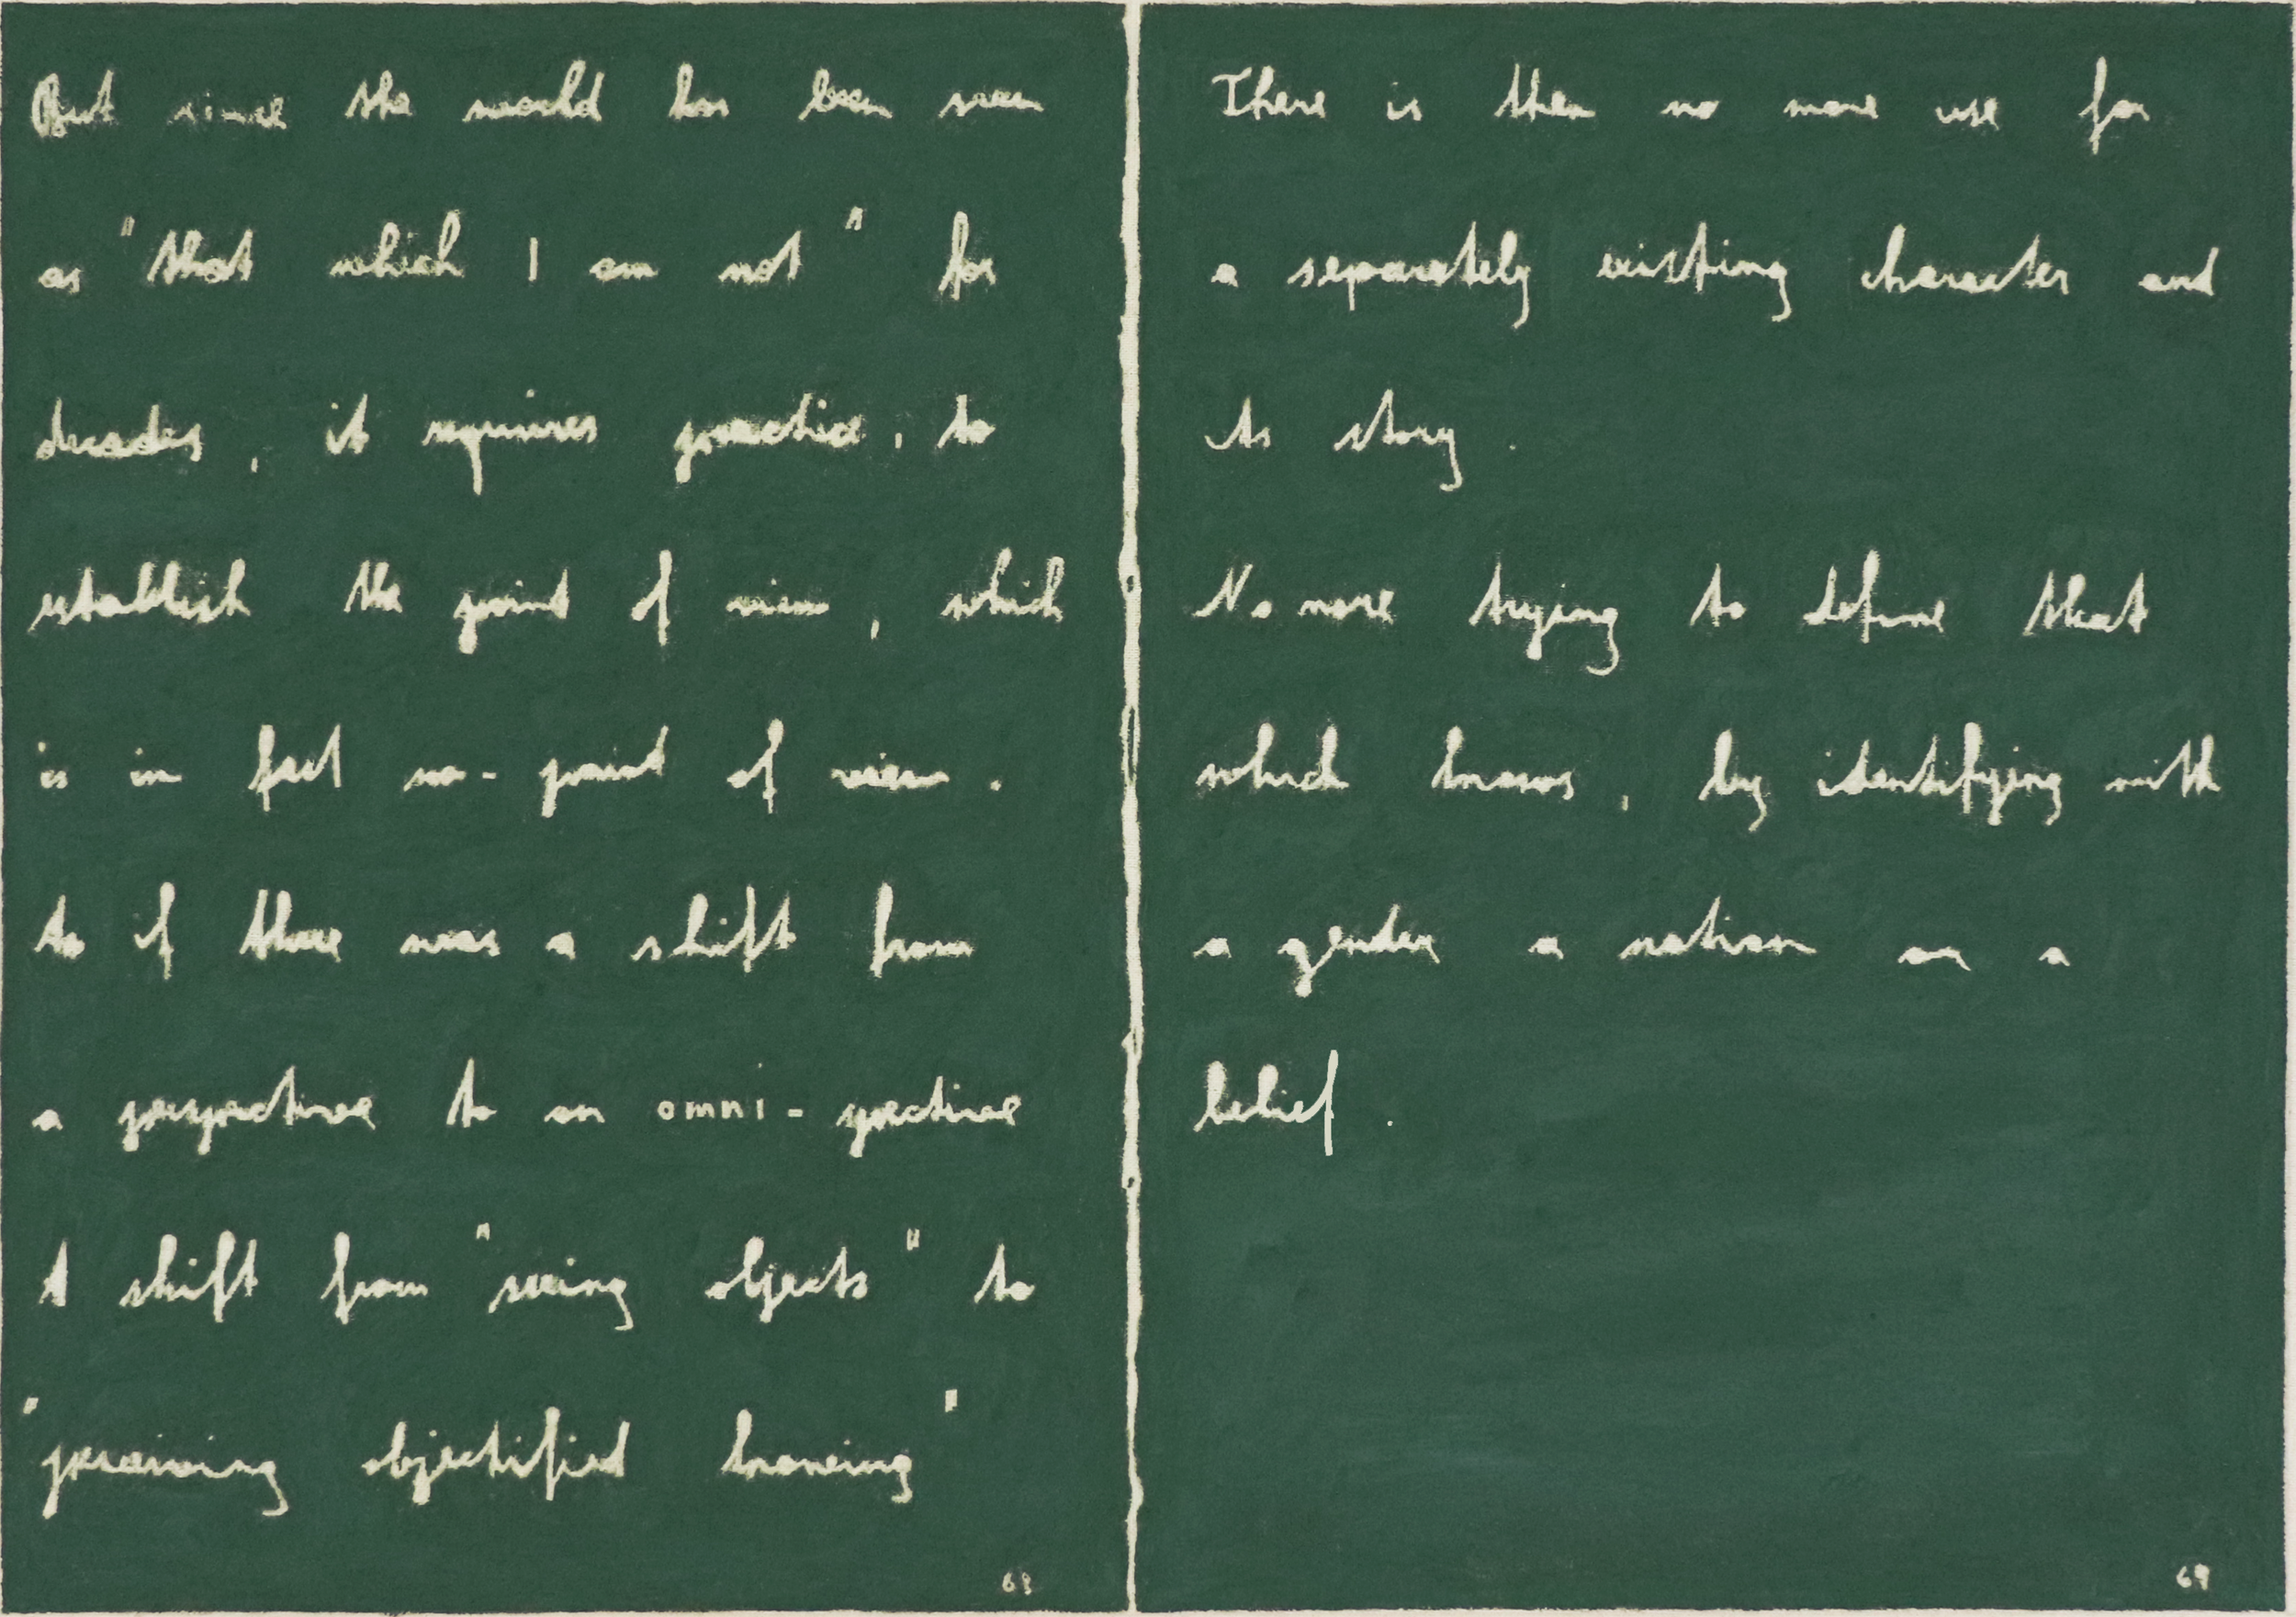 But since the world has been seen
as "that which I am not" for
decades, it requires practice, to
establish the point of view, which
is in fact no-point of view.
to if there was a shift from
a perspective to an omni-spective
A shift from "seeing objects" to
"perceiving objectified knowing"
68
There is then no more use for
a separately existing character and
its story.
No more trying to define that
which knows, by identifying with
a gender a nation or a
belief.
69